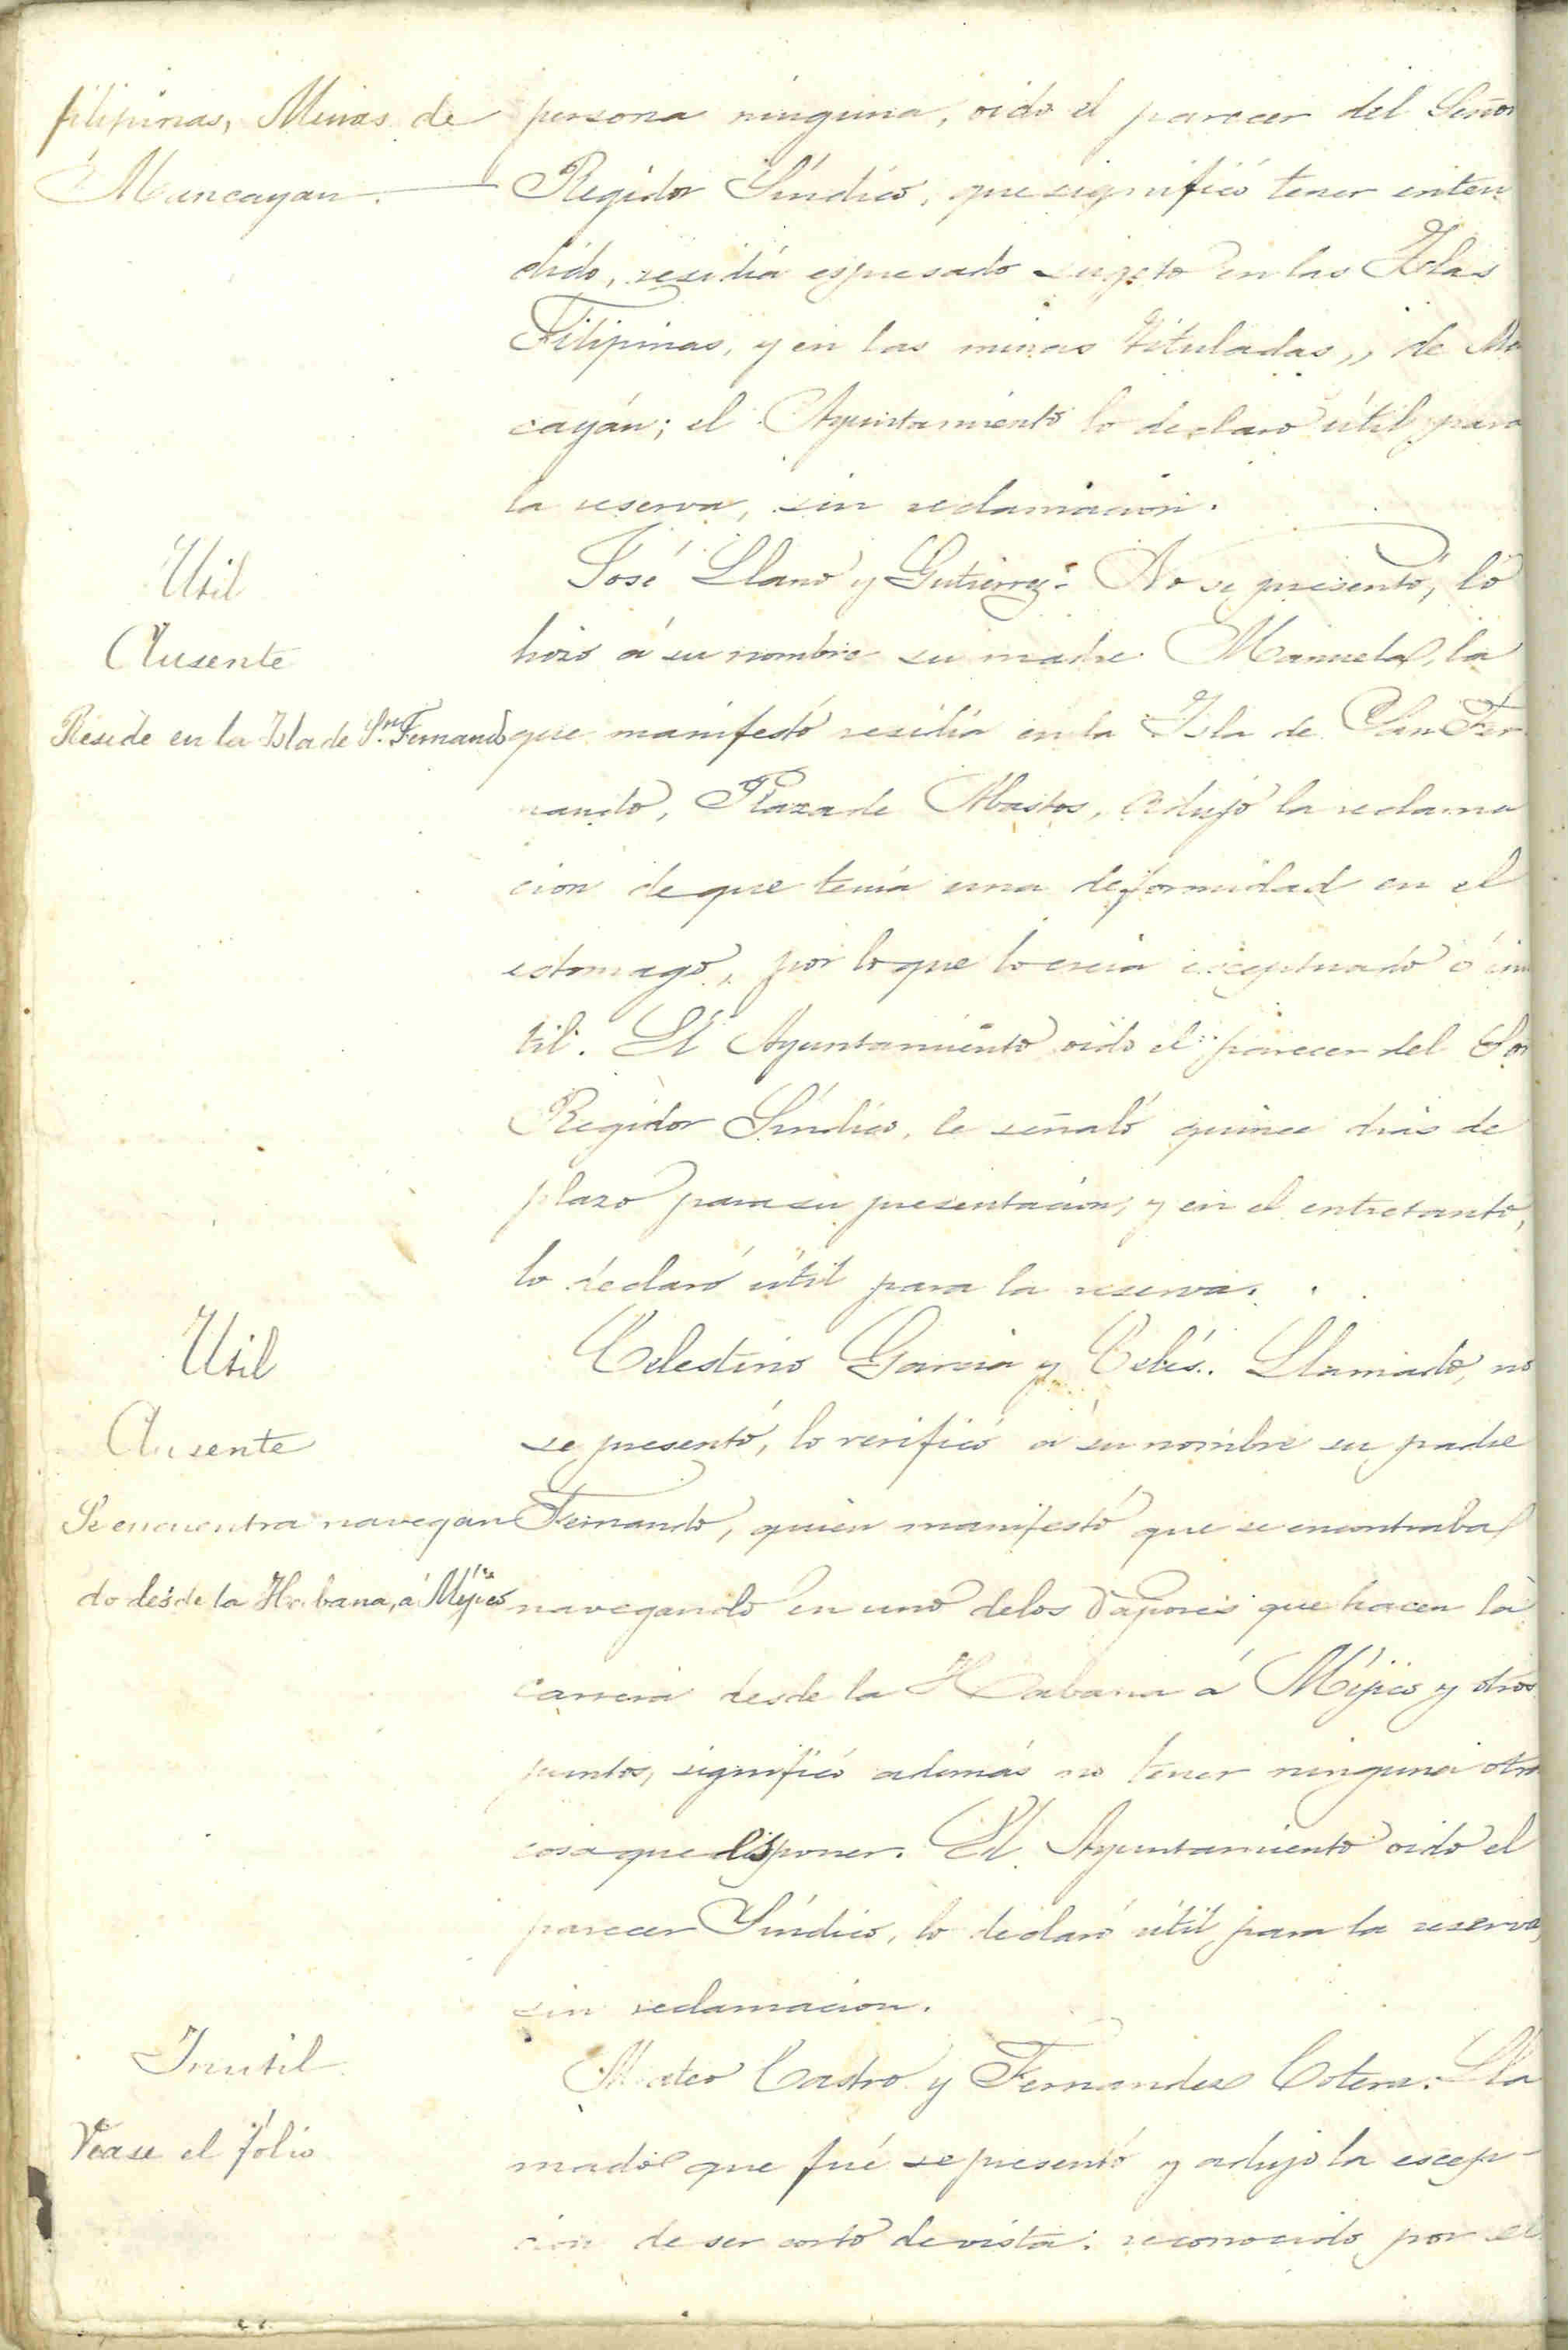 filipinas, Minas de
Mancayan.
persona ninguna, oido el parecer del Señor
Regidor Síndico, que significó tener enten
dido, residia espresado sugeto en las Islas
Filipinas, y en las minas tituladas,, de Ma
cayán; el Ayuntamiento lo declaro útil para
la reserva, sin reclamacion.
Util
Ausente
Reside en la Isla de Sn. Fernando
José Llano y Gutierrez. No se presentó, lo
hizo á su nombre su madre Manuela, la
que manifestó residia en la Isla de San Fer
nando, Plaza de Abastos, adujó la reclama
cion de que tenia una deformidad en el
estomago, por lo que lo creia esceptuado ó inu
til. El Ayuntamiento oido el parecer del Sor
Regidor Síndico, le señaló quince dias de
plazo para su presentacion, y en el entretanto,
lo declaró útil para la reserva.
Util
Ausente
Se encuentra navegan
do desde la Habana, á Méjico
Celestino Garcia y Celis. Llamado, no
se presentó, lo verificó á su nombre su padre
Fernando, quien manifestó que se encontraba
navegando en uno delos Vapores que hacen la
carrera desde la Habana á Méjico y otros
puntos, significó además no tener ninguna otra
cosa que esponer. El Ayuntamiento oido el
parecer Síndico, lo declaró útil para la reserva,
sin reclamacion.
Inutil
Vease el folio
Mateo Castro y Fernandez Cotera. Lla
mado que fué se presentó y adujo la escep-
cion de ser corto de vista: reconocido por el